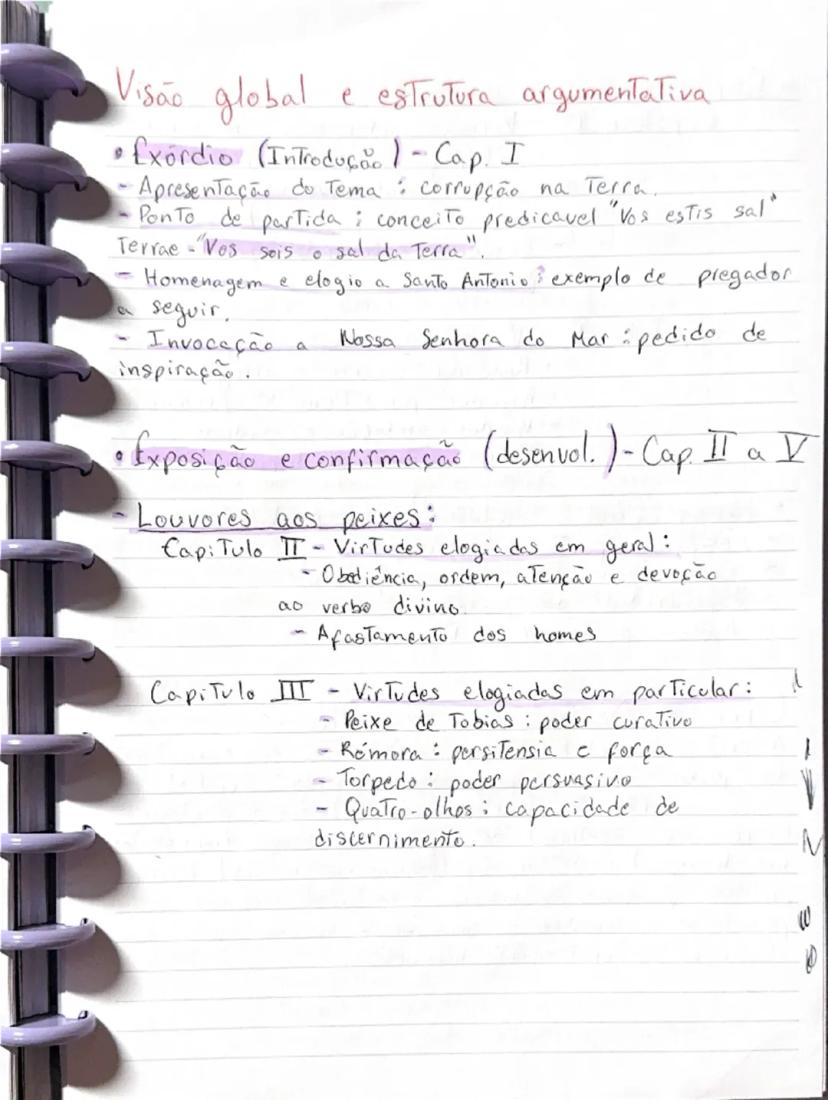 Visão global e estrutura argumentativa
• Exórdio (Introdução) - Cap. I
- Apresentação do Tema : corrupção na Terra.
- Ponto de partida : conceito predicavel "Vos estis sal"
Terrae - "Vos sois o sal da Terra".
- Homenagem e elogio a Santo Antonio : exemplo de pregador
a seguir.
- Invocação a Nossa Senhora do Mar : pedido de
inspiração.
• Exposição e confirmação (desenvol.) - Cap. II a V
- Louvores aos peixes :
Capitulo II - Virtudes elogiadas em geral :
- Obediência, ordem, atenção e devoção
ao verbo divino.
- Afastamento dos homes
Capitulo III - Virtudes elogiadas em particular :
- Peixe de Tobias : poder curativo
- Rémora : persitensia e força
- Torpedo : poder persuasivo
- Quatro-olhos : capacidade de
discernimento.